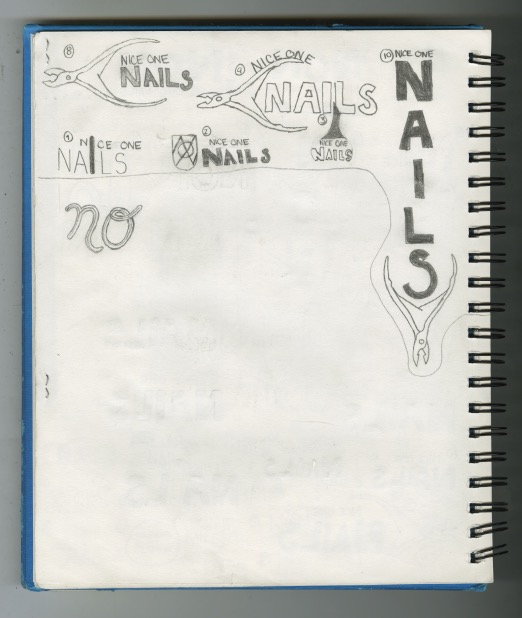 8
NICE ONE
NAILS
9
NICE ONE
NAILS
10
NICE ONE
NAILS
1
NICE ONE
NAILS
2
NICE ONE
NAILS
3
NICE ONE
NAILS
no